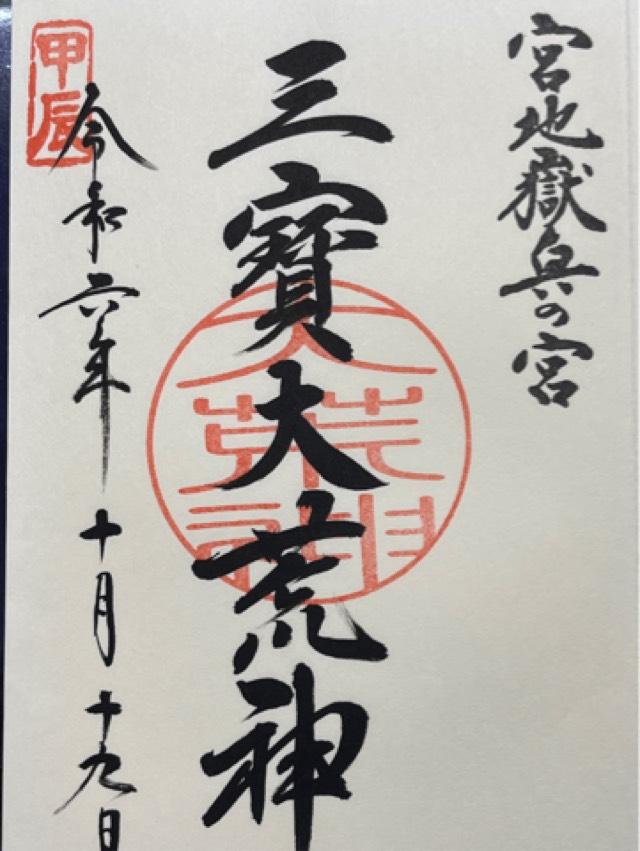 宮地嶽奥の宮
三寳大荒神
甲辰
令和六年十月十九日